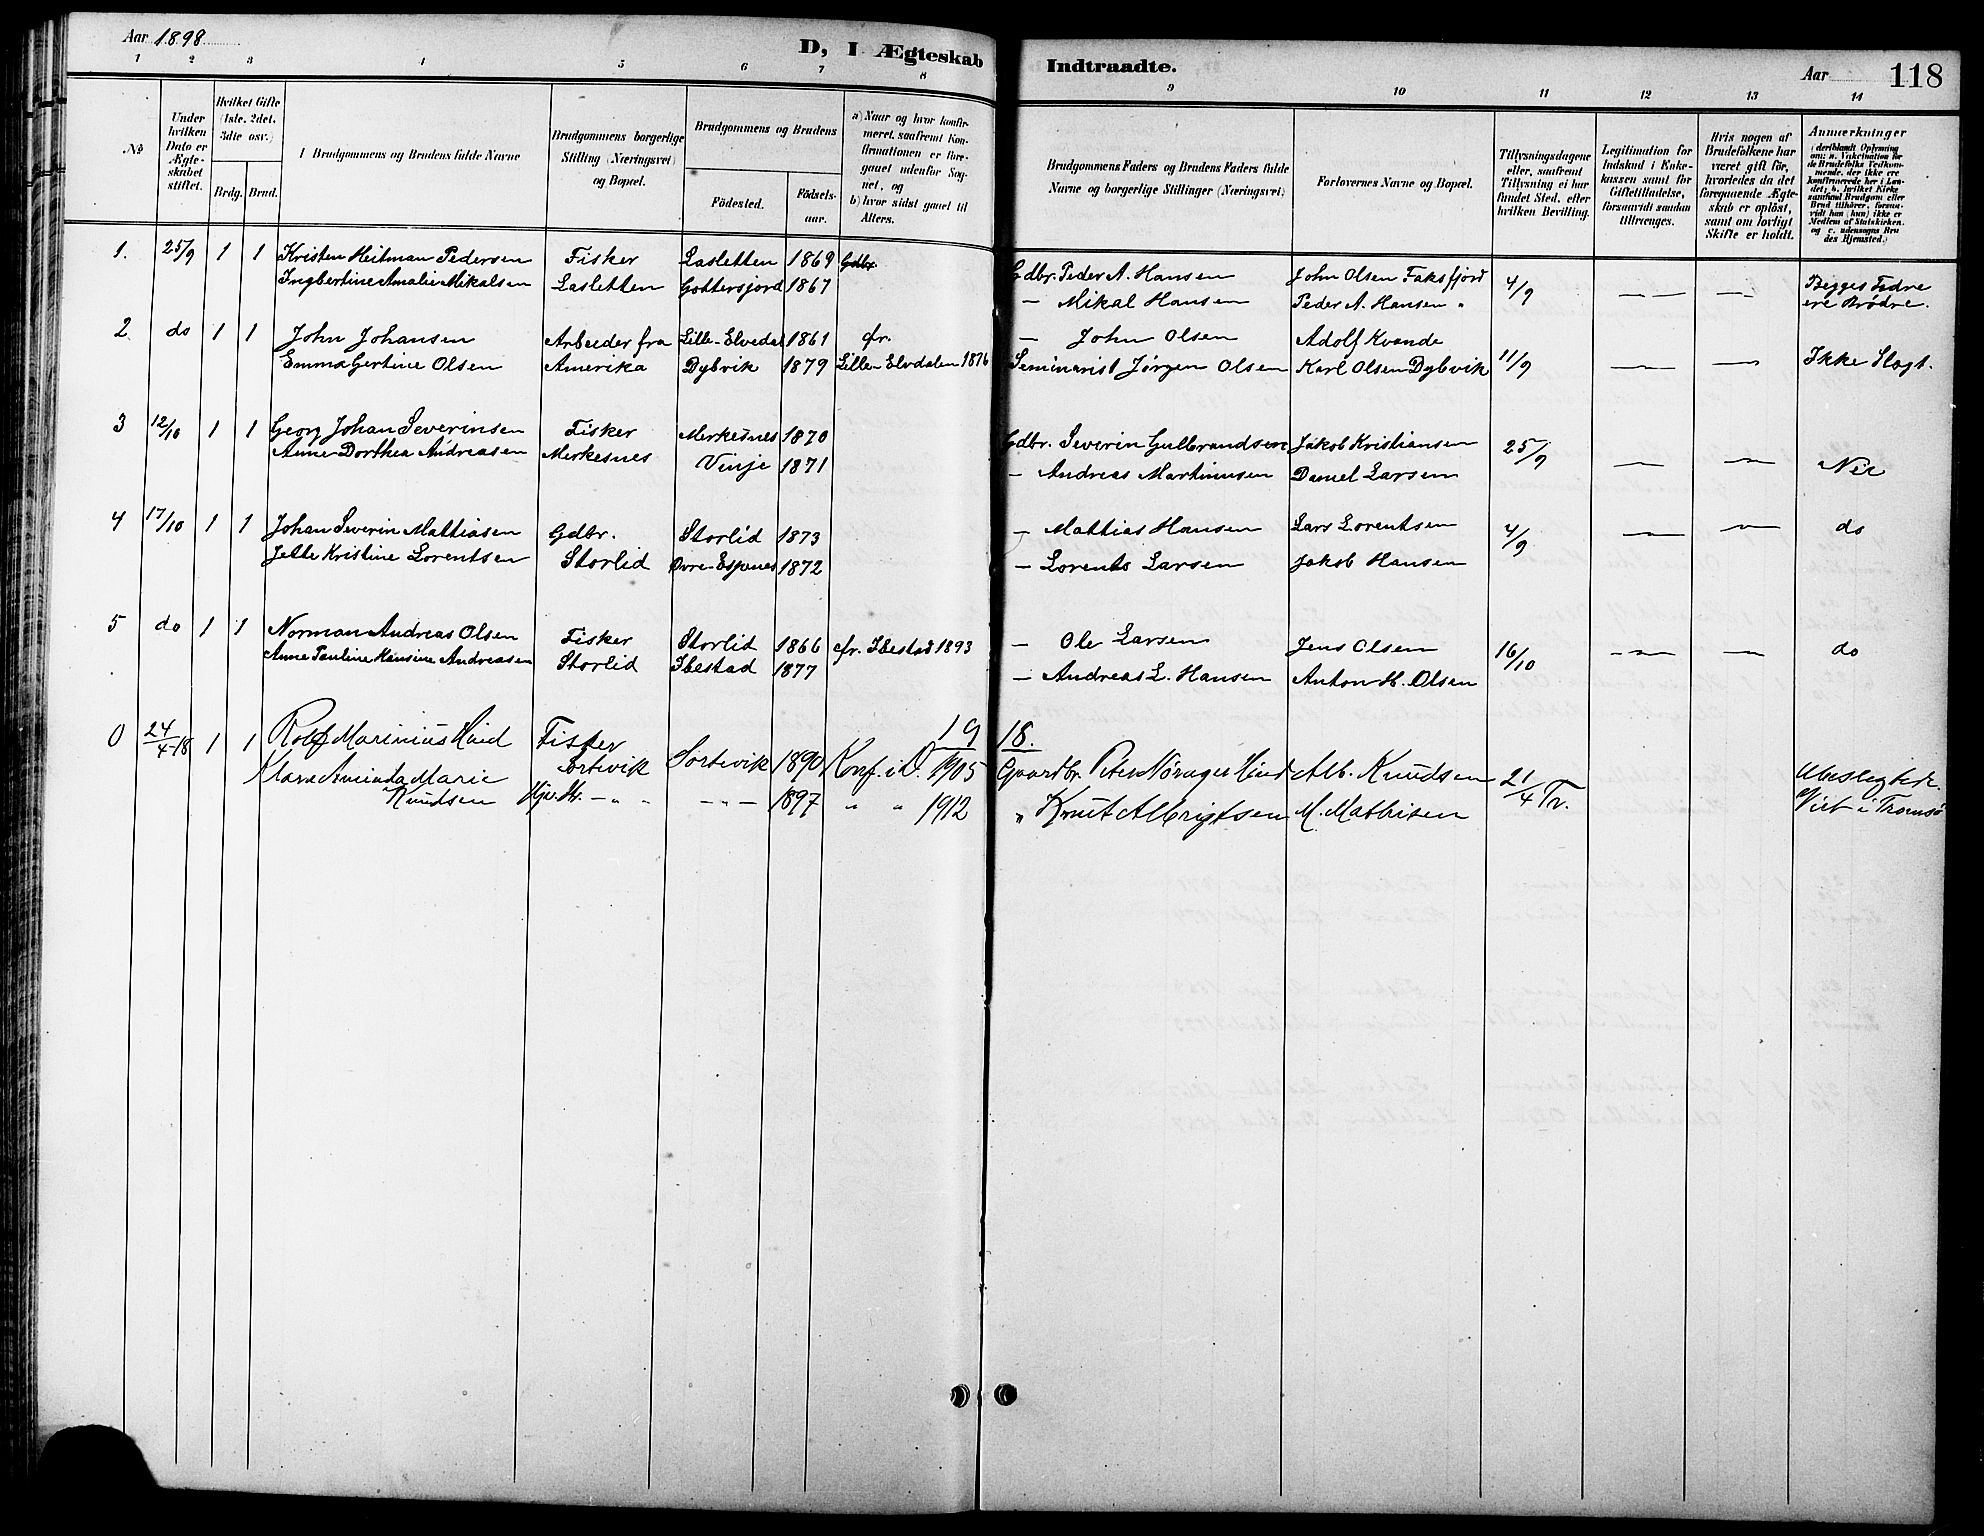 Aar 1898
D, I Ægteskab Indtraadte.
Aar 118
1 2 3 4 5 6 7 8 9 10 11 12 13 14
№
Under hvilken Dato er Ægteskabet stiftet.
Hvilket Gifte (1ste, 2det, 3die osv.)
Brdg. Brud.
Brudgommens og Brudens fulde Navne
Brudgommens borgerlige Stilling (Næringsvei) og Bopæl.
Brudgommens og Brudens
Fødested. Fødselsaar.
a) Naar og hvor konfirmeret, saafremt Konfirmationen er foregaaet udenfor Sognet, og
b) hvor sidst gaaet til Alters.
Brudgommens Faders og Brudens Faders fulde Navne og borgerlige Stillinger (Næringsvei)
Forlovernes Navne og Bopæl.
Tillysningsdagene eller, saafremt Tillysning ei har fundet Sted, efter hvilken Bevilling.
Legitimation for Indskud i Enkekassen samt for Giftetilladelse, forsaavidt saadan tiltrænges.
Hvis nogen af Brudefolkene har været gift før, hvorledes da det foregaaende Ægteskab er opløst, samt om lovligt Skifte er holdt.
Anmærkninger
(deriblandt Oplysning om: a. Vakcination for de Brudefolks Vedkommende, der ikke ere konfirmerede her i Landet; b. hvilket Kirkesamfund Brudgom eller Brud tilhører, forsaavidt han (hun) ikke er Medlem af Statskirken, og c. udensogns Brudes Hjemsted.)
1. 25/9 1 1 Kristen Heitman Pedersen Fisker Lasletten 1869 Gdbr. Peder A. Hansen John Olsen Faksfjord 4/9 — — — Begges Fædre
Ingbertine Amalie Mikalsen Lasletten Gottersjord 1867 — Mikal Hansen Peder A. Hansen " ere Brødre.
2 do 1 1 John Johansen Arbeider fra Lille-Elvedal 1861 fr. — John Olsen Adolf Kvande
Emma Gertine Olsen Amerika Dybvik 1879 Lille-Elvdalen 1876 Seminarist Jørgen Olsen Karl Olsen Dybvik 11/9 — — Ikke Slægt.
3 12/10 1 1 Georg Johan Severinsen Fisker Merkesnes 1870 Gdbr. Severin Gulbrandsen Jakob Kristiansen 25/9 — —
Anne Dorthea Andreasen Merkesnes Vinje 1871 — Andreas Martinusen Daniel Larsen Nei
4 17/10 1 1 Johan Severin Mathiasen Gdbr. Storlid 1873 — Mattias Hansen Lars Lorentsen 4/9 — — do
Jette Kristine Lorentsen Storlid Øvre-Espenes 1872 — Lorents Larsen Jakob Hansen
5 do 1 1 Norman Andreas Olsen Fisker Storlid 1866 fr. Ibestad 1893 — Ole Larsen Jens Olsen 16/10 — — do
Anne Pauline Hansine Andreasen Storlid Ibestad 1877 — Andreas L. Hansen Anton H. Olsen
19 18.
0 24/4-18 1 1 Rolf Marinius Hind Fisker Sortevik Sortevik 1890 Konf. i D. 1905 Gaardbr. Peter Nørager Hind Alb. Knudsen 21/4 Tr. Ubeslegtede.
Klara Aminda Marie Knudsen — " " — " — 1897 " " 1912 " Knut Albrigtsen M. Mathisen Viet i Tromsø